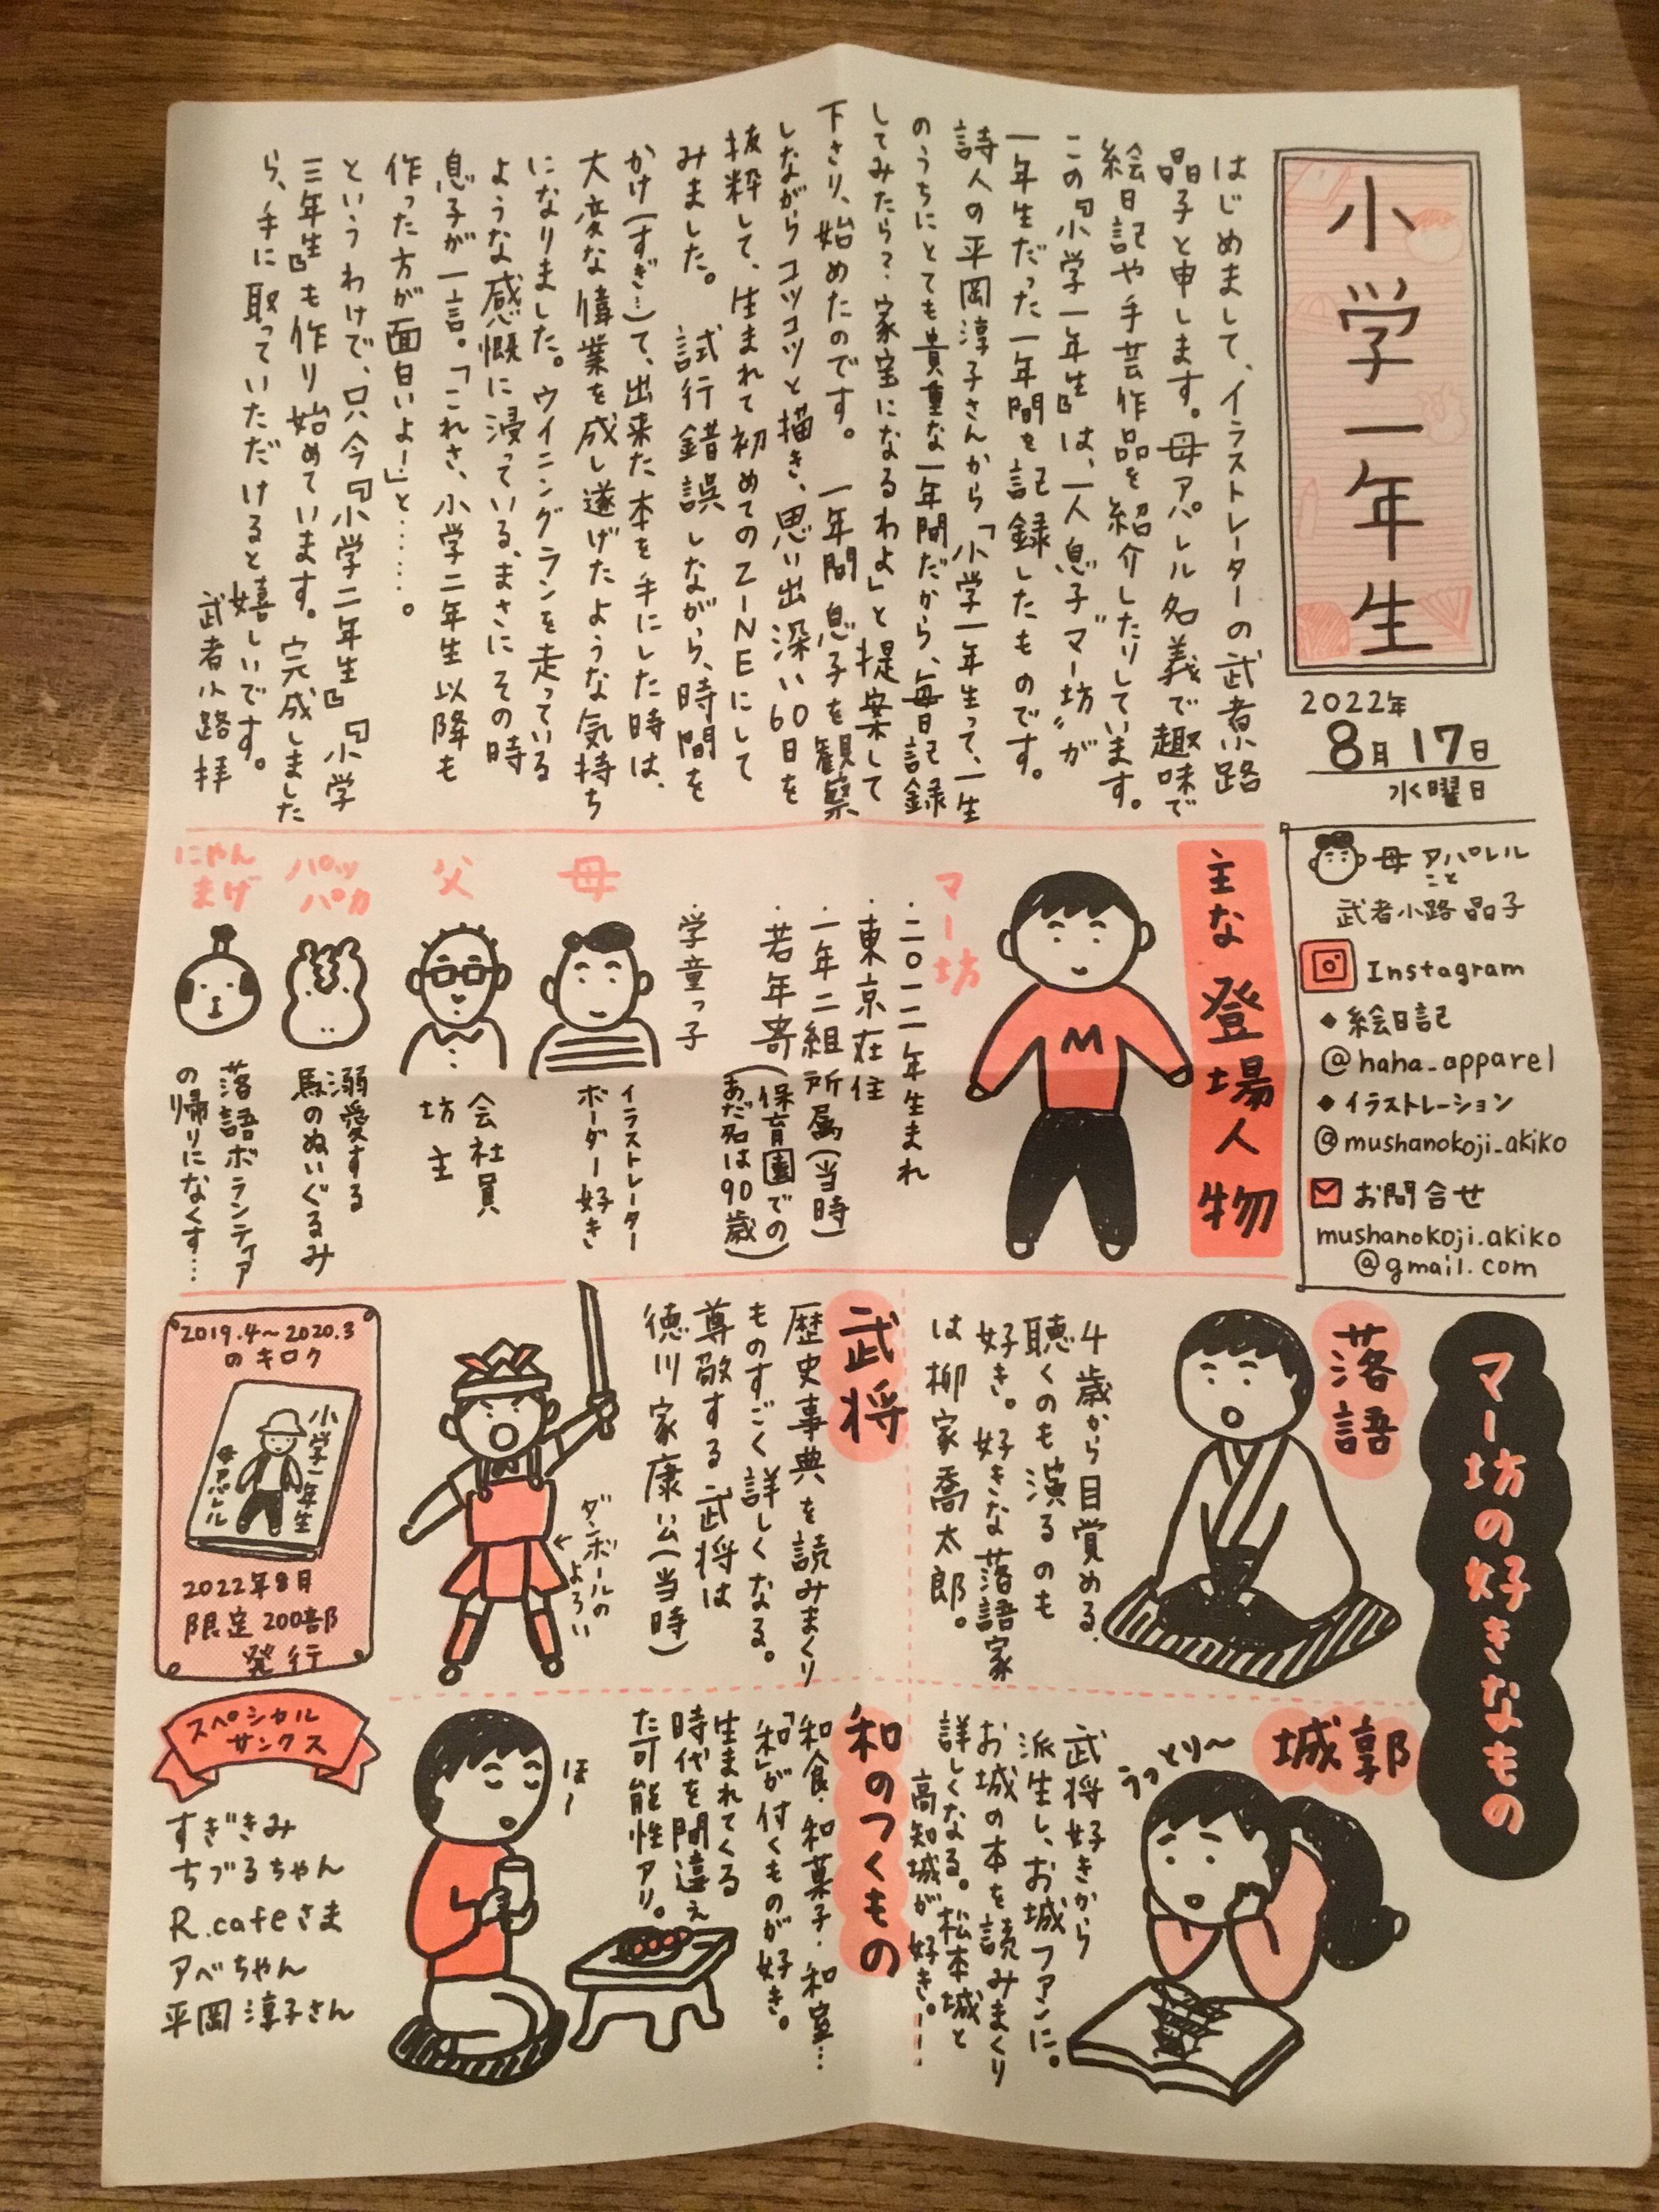 小学一年生
2022年
8月17日
水曜日
はじめまして、イラストレーターの武者小路
晶子と申します。母アパレル名義で趣味で
絵日記や手芸作品を紹介したりしています。
この『小学一年生』は、一人息子"マー坊"が
一年生だった一年間を記録したものです。
詩人の平岡淳子さんから「小学一年生って、一生
のうちにとても貴重な一年間だから、毎日記録
してみたら?家宝になるわよ」と提案して
下さり、始めたのです。一年間息子を観察
しながらコツコツと描き、思い出深い60日を
抜粋して、生まれて初めてのZINEにして
みました。試行錯誤しながら、時間を
かけ(すぎ…)て、出来た本を手にした時は、
大変な偉業を成し遂げたような気持ち
になりました。ウイニングランを走っている
ような感慨に浸っている、まさにその時
息子が一言。「これさ、小学二年生以降も
作った方が面白いよー」と……。
というわけで、只今『小学二年生』『小学
三年生』も作り始めています。完成しました
ら、手に取っていただけると嬉しいです。
武者小路拝
母アパレル
こと
武者小路晶子
Instagram
◆絵日記
@haha_apparel
◆イラストレーション
@mushanokoji_akiko
お問合せ
mushanokoji.akiko
@gmail.com
主な登場人物
M
マー坊
・二〇一二年生まれ
・東京在住
・一年二組所属(当時)
・若年寄(保育園での
あだ名は90歳)
学童っ子
母
イラストレーター
ボーダー好き
父
会社員
坊主
パッ
パカ
溺愛する
馬のぬいぐるみ
にゃん
まげ
落語ボランティア
の帰りになくす…
マー坊の好きなもの
落語
4歳から目覚める。
聴くのも演るのも
好き。好きな落語家
は柳家喬太郎。
武将
歴史事典を読みまくり
ものすごく詳しくなる。
尊敬する武将は
徳川家康公(当時)
ダンボールの
よろい
城郭
うっとり〜
武将好きから
派生し、お城ファンに。
お城の本を読みまくり
詳しくなる。松本城と
高知城が好き。
和のつくもの
和食・和菓子・和室…
「和」が付くものが好き。
生まれてくる
時代を間違え
た可能性アリ。
ほー
2019.4〜2020.3
のキロク
小学一年生
母アパレル
2022年8月
限定200部
発行
スペシャル
サンクス
すぎきみ
ちづるちゃん
R.cafeさま
アベちゃん
平岡淳子さん